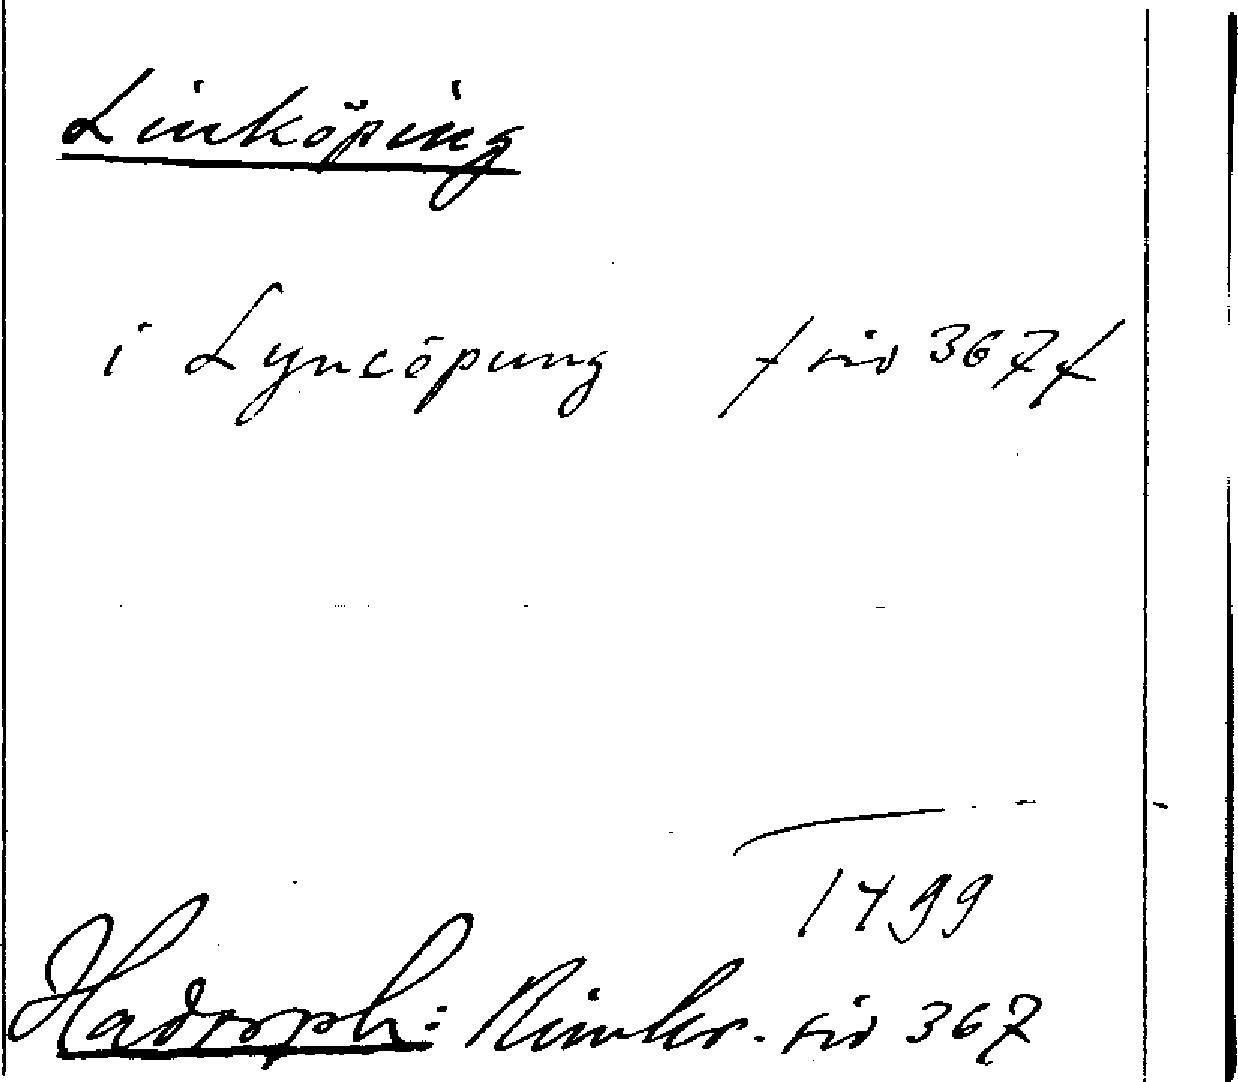 Linköping
i Lyncöpung / sid 367 /
1499
Hadorph: Rimkr. sid 367